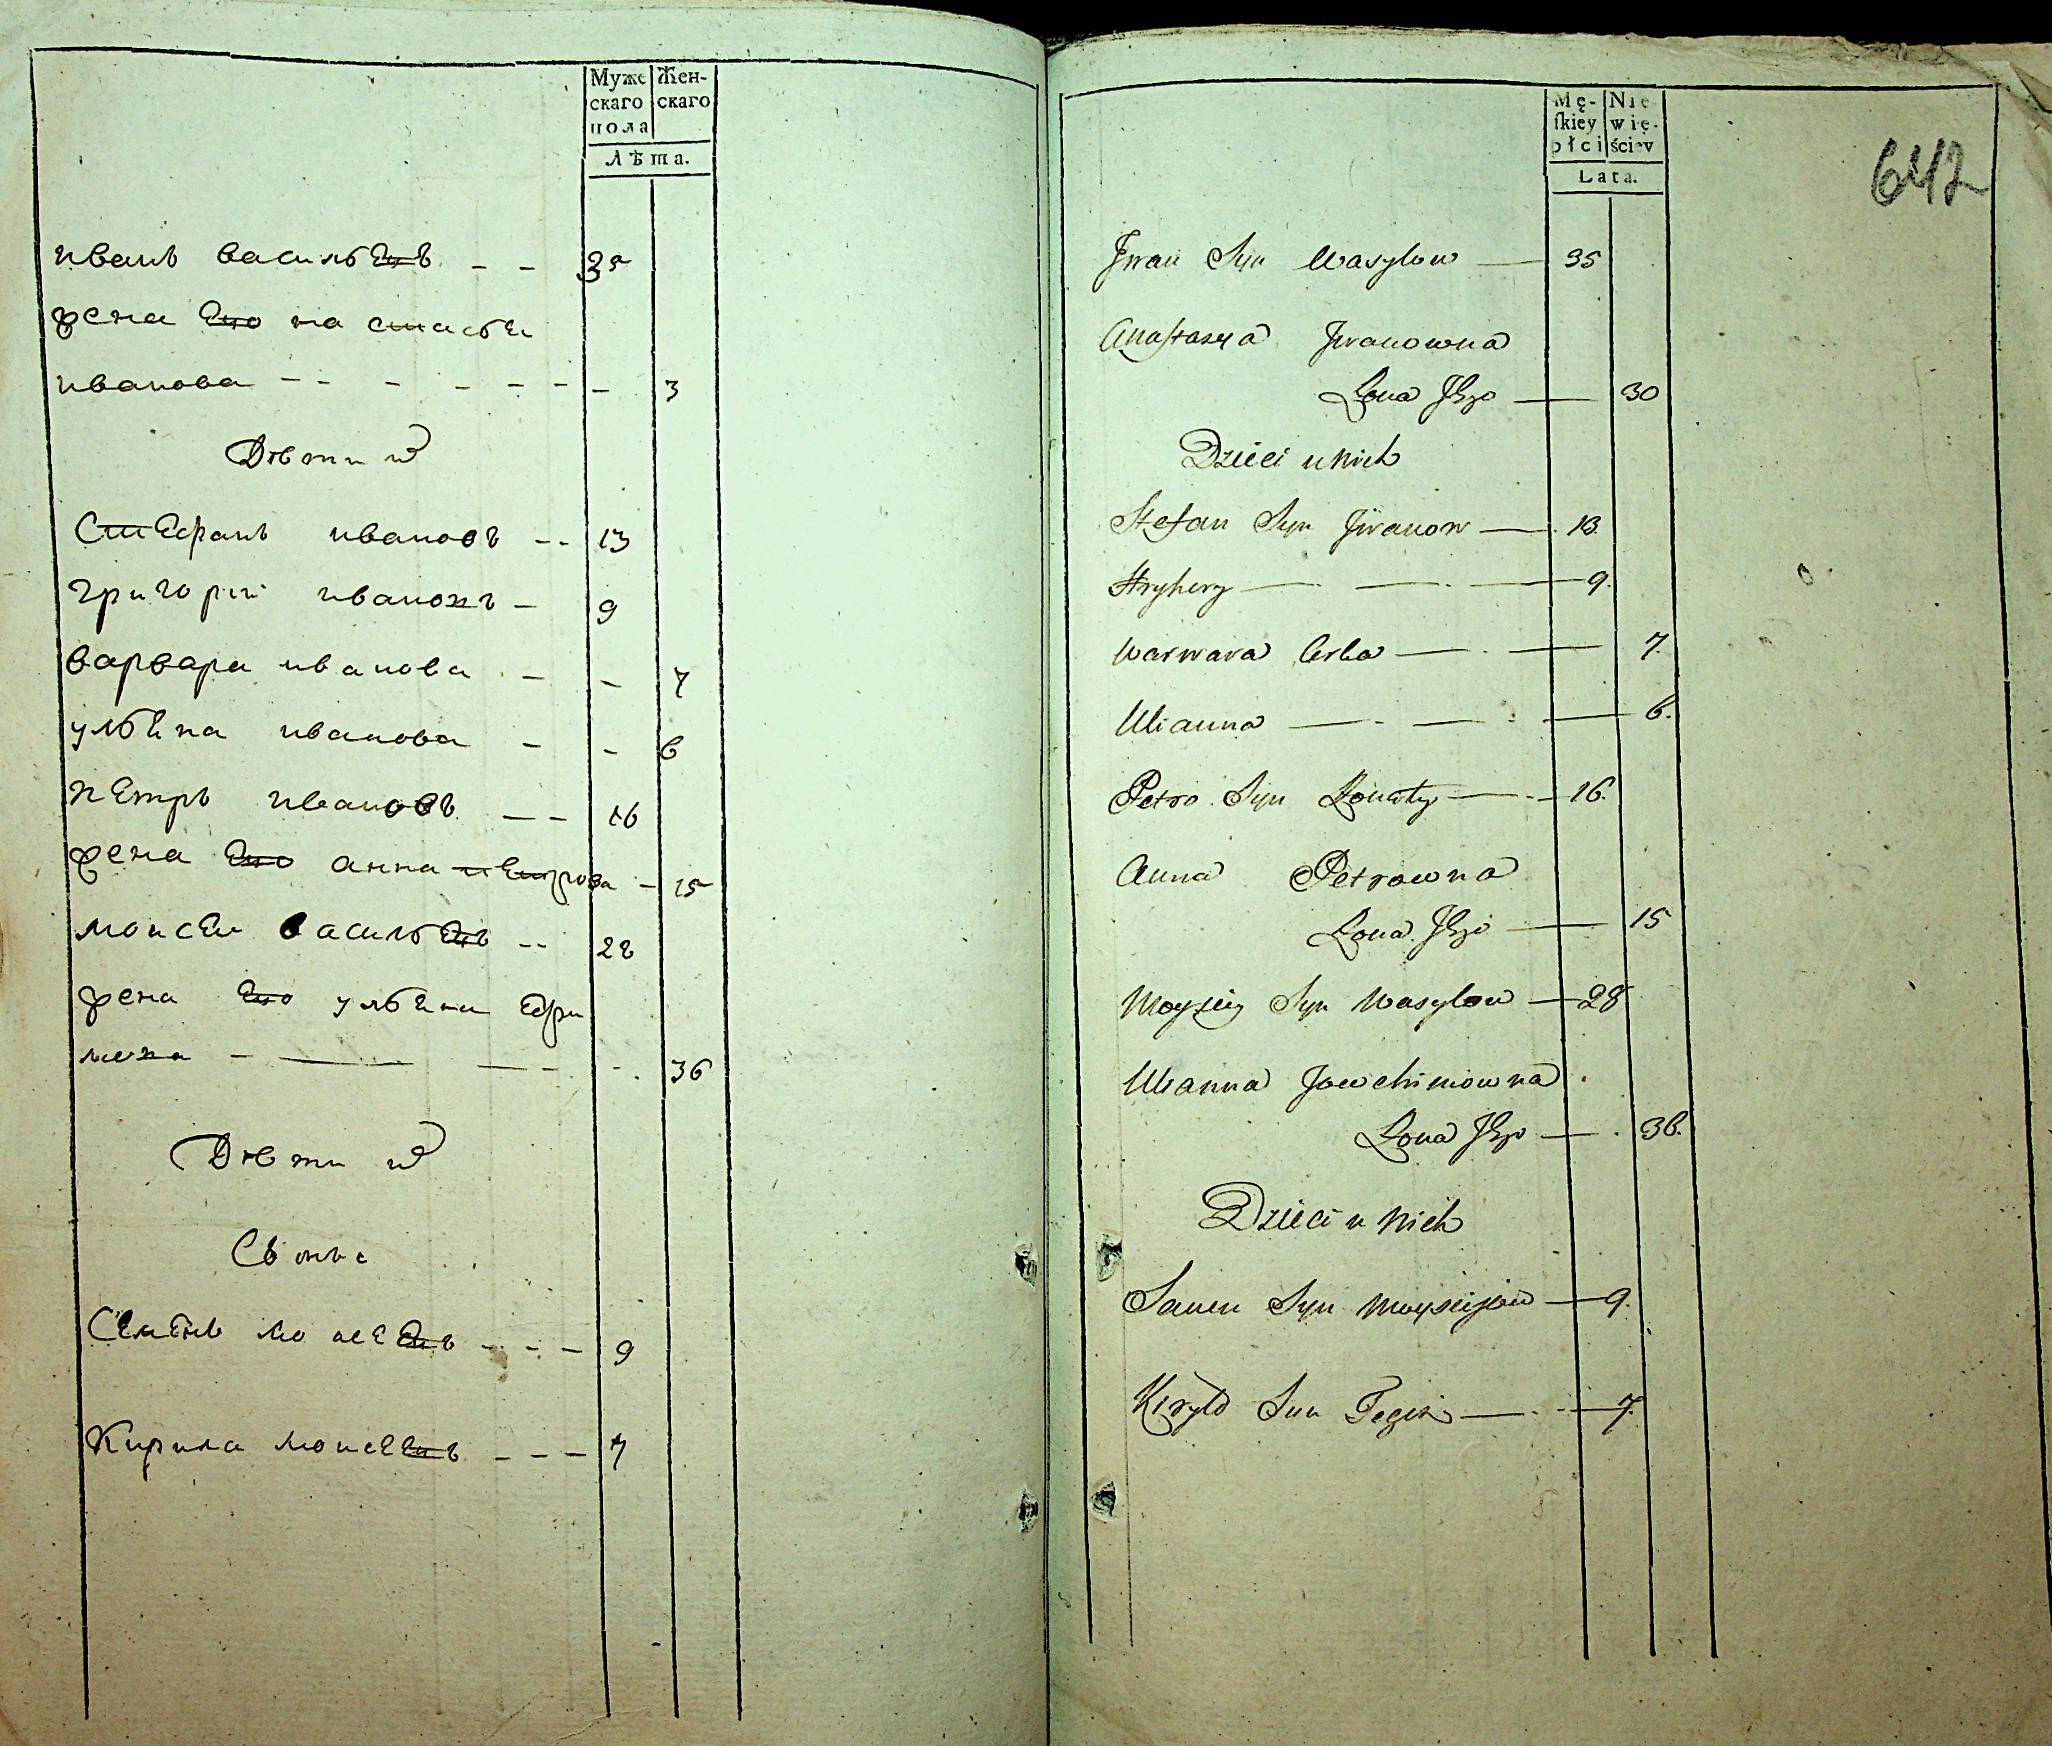 Муже
скаго
пола
Жен-
скаго
Лѣта.
иванъ васильевъ - - 35
жена ево настасья
иванова - - - - - - - 3
Дѣти их
Стефанъ ивановъ -- 13
григорий ивановъ - 9
варвара иванова - - 7
ульяна иванова - - 6
петръ ивановъ -- 16
жена ево анна петрова - 15
моисеи васильевъ -- 28
жена ево ульяна ефи
мова - - - - - 36
Дѣти их
Семенъ моисеевъ - - - 9
Кирила моисеевъ - - - 7
Mę-
skiey
płci
Nie
wię-
ściey
Lata.
642
Jwan Syn Wasylow — 35
Anastazya Jwanowna
Żona Jego — 30
Dzieci u Nich
Stefan Syn Jwanow — 13.
Hryhory — — — 9.
Warwara Corka — — 7.
Ulianna — — — 6.
Petro Syn — 16.
Anna Petrowna
Żona Jego — 15
Moysiey Syn Wasylow — 28
Ulianna Jowchimowna
Żona Jego — 36.
Dzieci u Nich
Syn Moysiejow — 9.
Kiryło Syn Tegoż — 7.